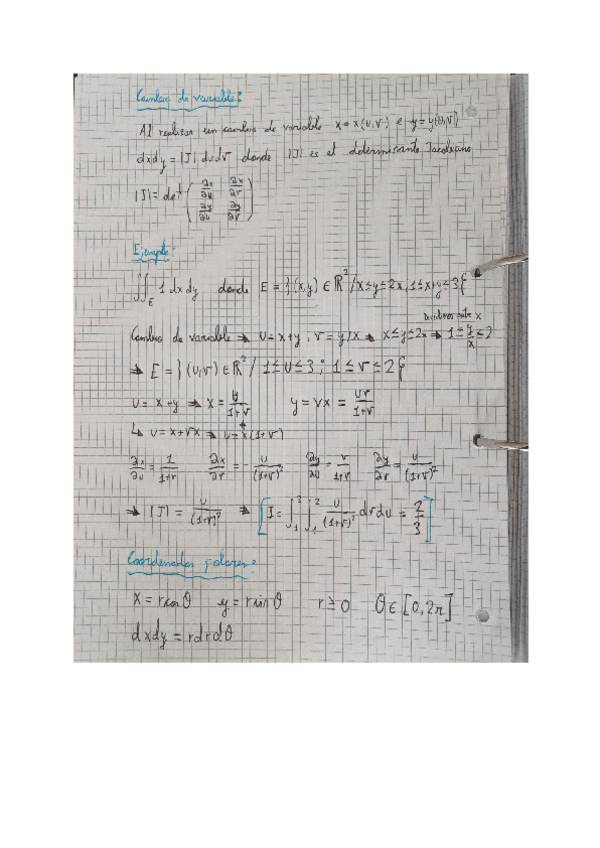 Cambio de variable:
Al realizar un cambio de variable x = x(u,v) e y = y(u,v)
dxdy = |J| dudv donde |J| es el determinante Jacobiano
|J| = det ( ∂x/∂u ∂x/∂v ; ∂y/∂u ∂y/∂v )
Ejemplo:
∬_E 1 dxdy donde E = }(x,y) ∈ ℝ² / x≤y≤2x, 1≤x+y≤3{
dividimos entre x
Cambio de variable ⇒ u = x+y, v = y/x ⇒ x≤y≤2x ⇒ 1≤y/x≤2
⇒ E = }(u,v) ∈ ℝ² / 1≤u≤3 ; 1≤v≤2{
u = x+y ⇒ x = u/(1+v) y = vx = uv/(1+v)
↳ u = x+vx ⇒ u = x(1+v)
∂x/∂u = 1/(1+v) ∂x/∂v = - u/(1+v)² ∂y/∂u = v/(1+v) ∂y/∂v = u/(1+v)²
⇒ |J| = u/(1+v)² ⇒ [I = ∫₁³ ∫₁² u/(1+v)² dvdu = 2/3]
Coordenadas polares:
x = r cos θ y = r sin θ r ≥ 0 θ ∈ [0, 2π]
dxdy = r dr dθ